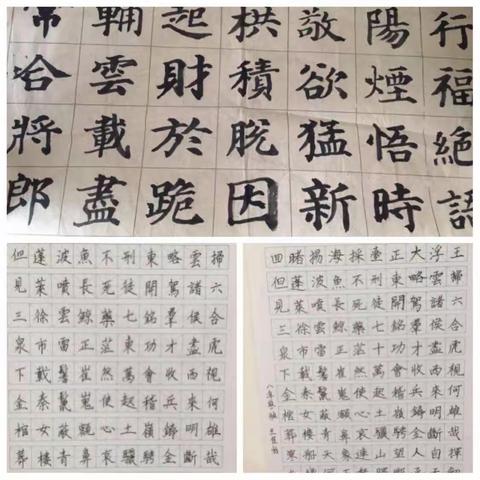 行福絕語
陽煙悟時
敬欲猛新
栱積脫因
起財於跪
輔雲載盡
常哈將郎
掃六合虎視何雄哉
雲諸侯盡西來明斷
略駕羣才收兵鑄金
東開銘功會稽嶺騁
刑徒七東萬起土驪
不死藥茫然使心哀
魚長鯨正崔嵬額鼻
波噴雲雷鬐鬣蔽青
蓬萊徐市載秦女樓
但見三泉下金棺葬
王掃六合虎視何雄哉揮
浮雲諸侯盡西來明斷自
大略駕羣才收兵鑄金人
正東開銘功會稽嶺騁望
臺刑徒七十萬起土驪山
採不死藥茫然使心哀連
海魚長鯨正崔嵬額鼻
揚波噴雲雷鬐鬣蔽青天
睹蓬萊徐市載秦女樓船
回但見三泉下金棺葬寒